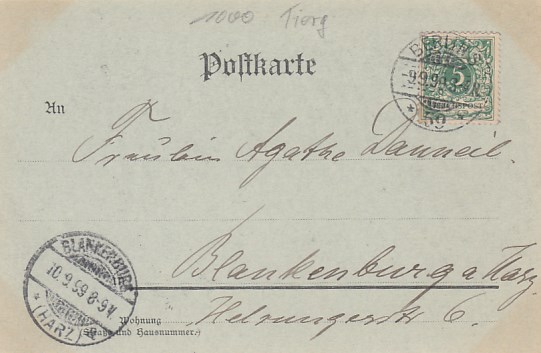 1000 Tierg
Postkarte
BERLIN
9.9.99
5
REICHSPOST
* 59 *
An
Fräulein Agathe Danneil.
Blankenburg a Harz.
BLANKENBURG
10.9.99 8-9V
* (HARZ) *
Helsungerstr 6.
Wohnung
(Straße und Hausnummer)